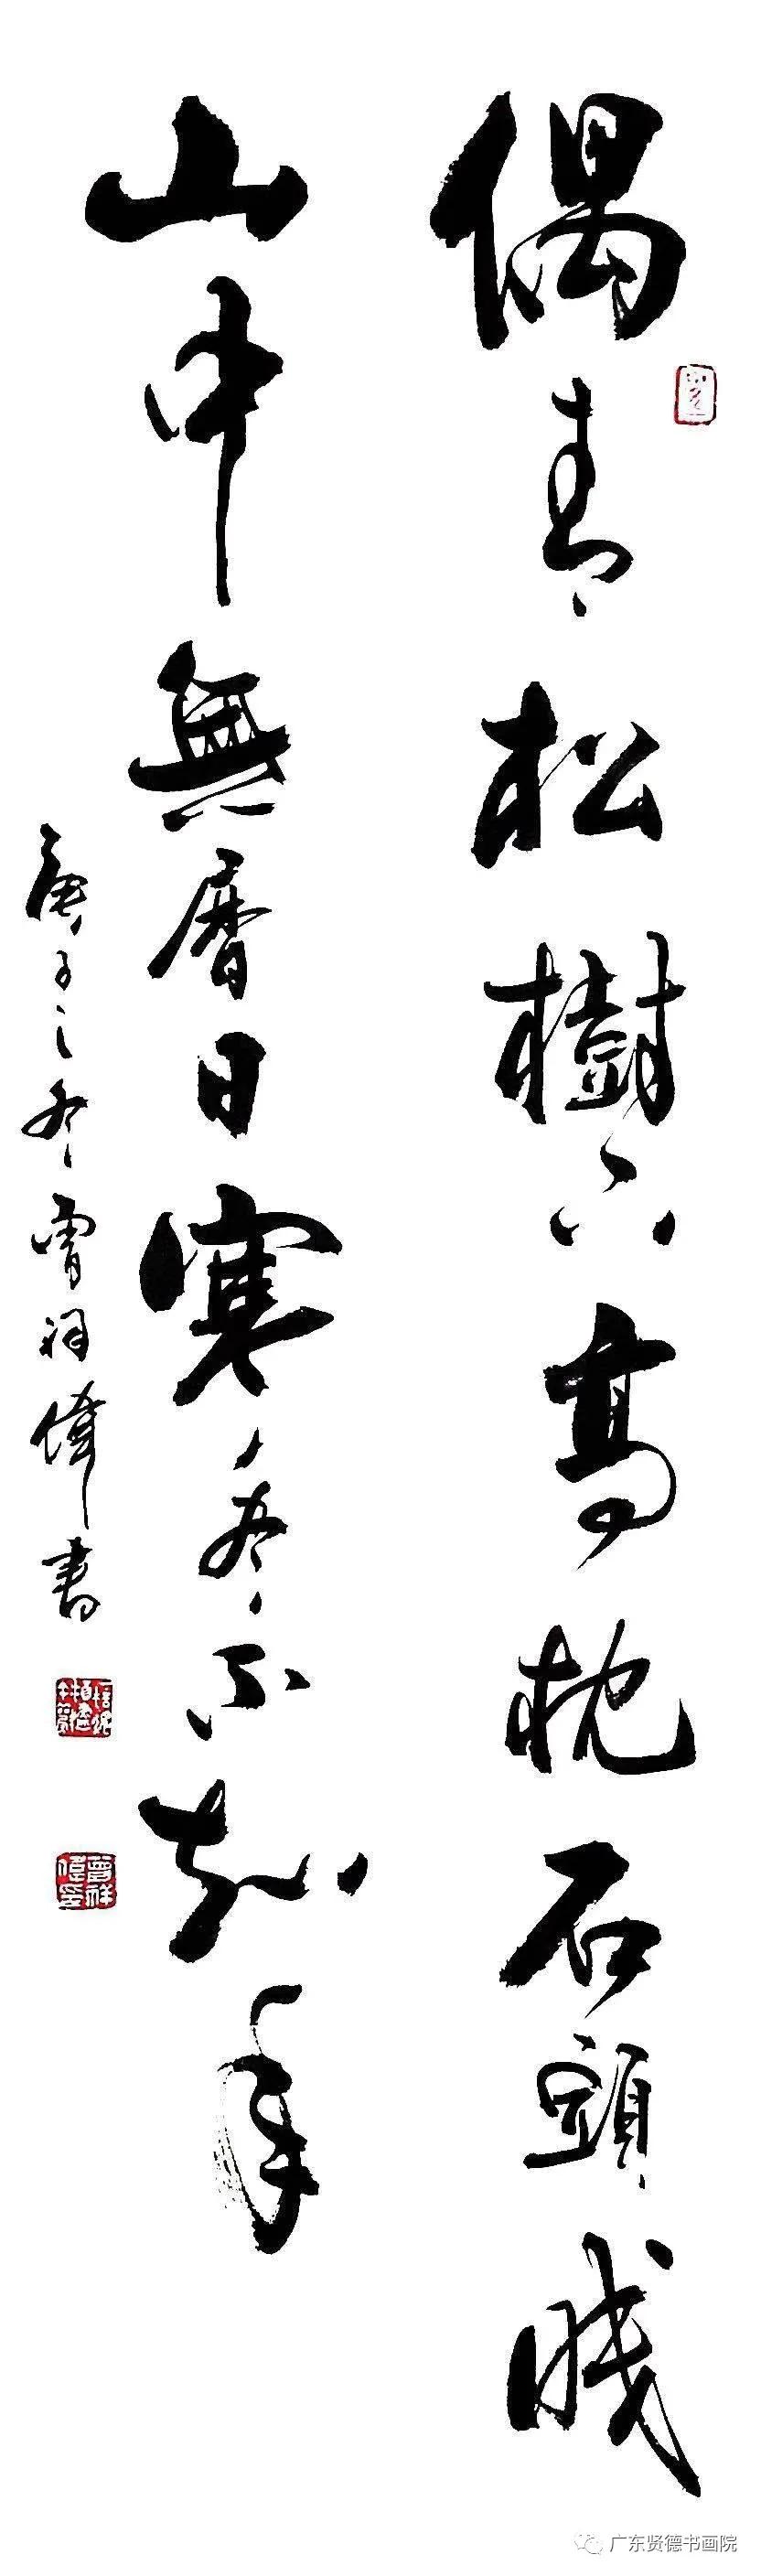 偶來松樹下高枕石頭眠
山中無曆日寒盡不知年
庚子之冬曾祥偉書
曾祥偉印
广东贤德书画院